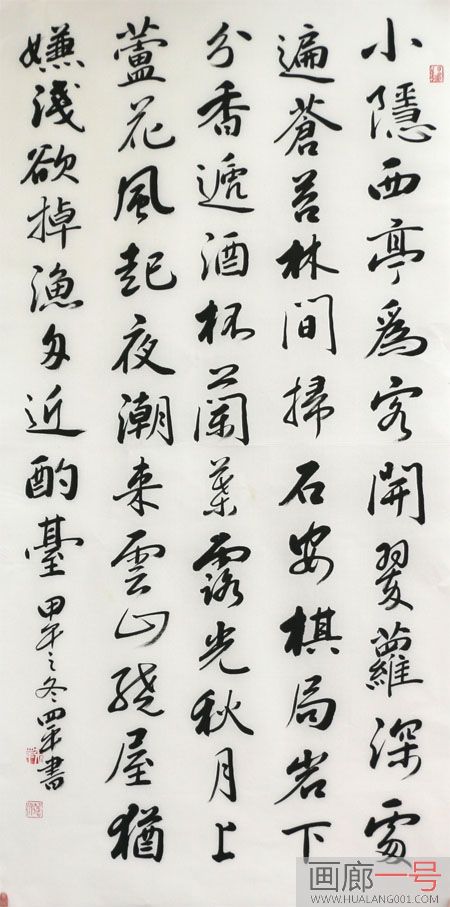 小隱西亭爲客開翠蘿深處
遍蒼苔林間掃石安棋局岩下
分香遞酒杯蘭葉露光秋月上
蘆花風起夜潮来雲山繞屋猶
嫌淺欲掉漁舟近酌臺
甲午之冬四平書
画廊一号
WWW.HUALANG001.COM